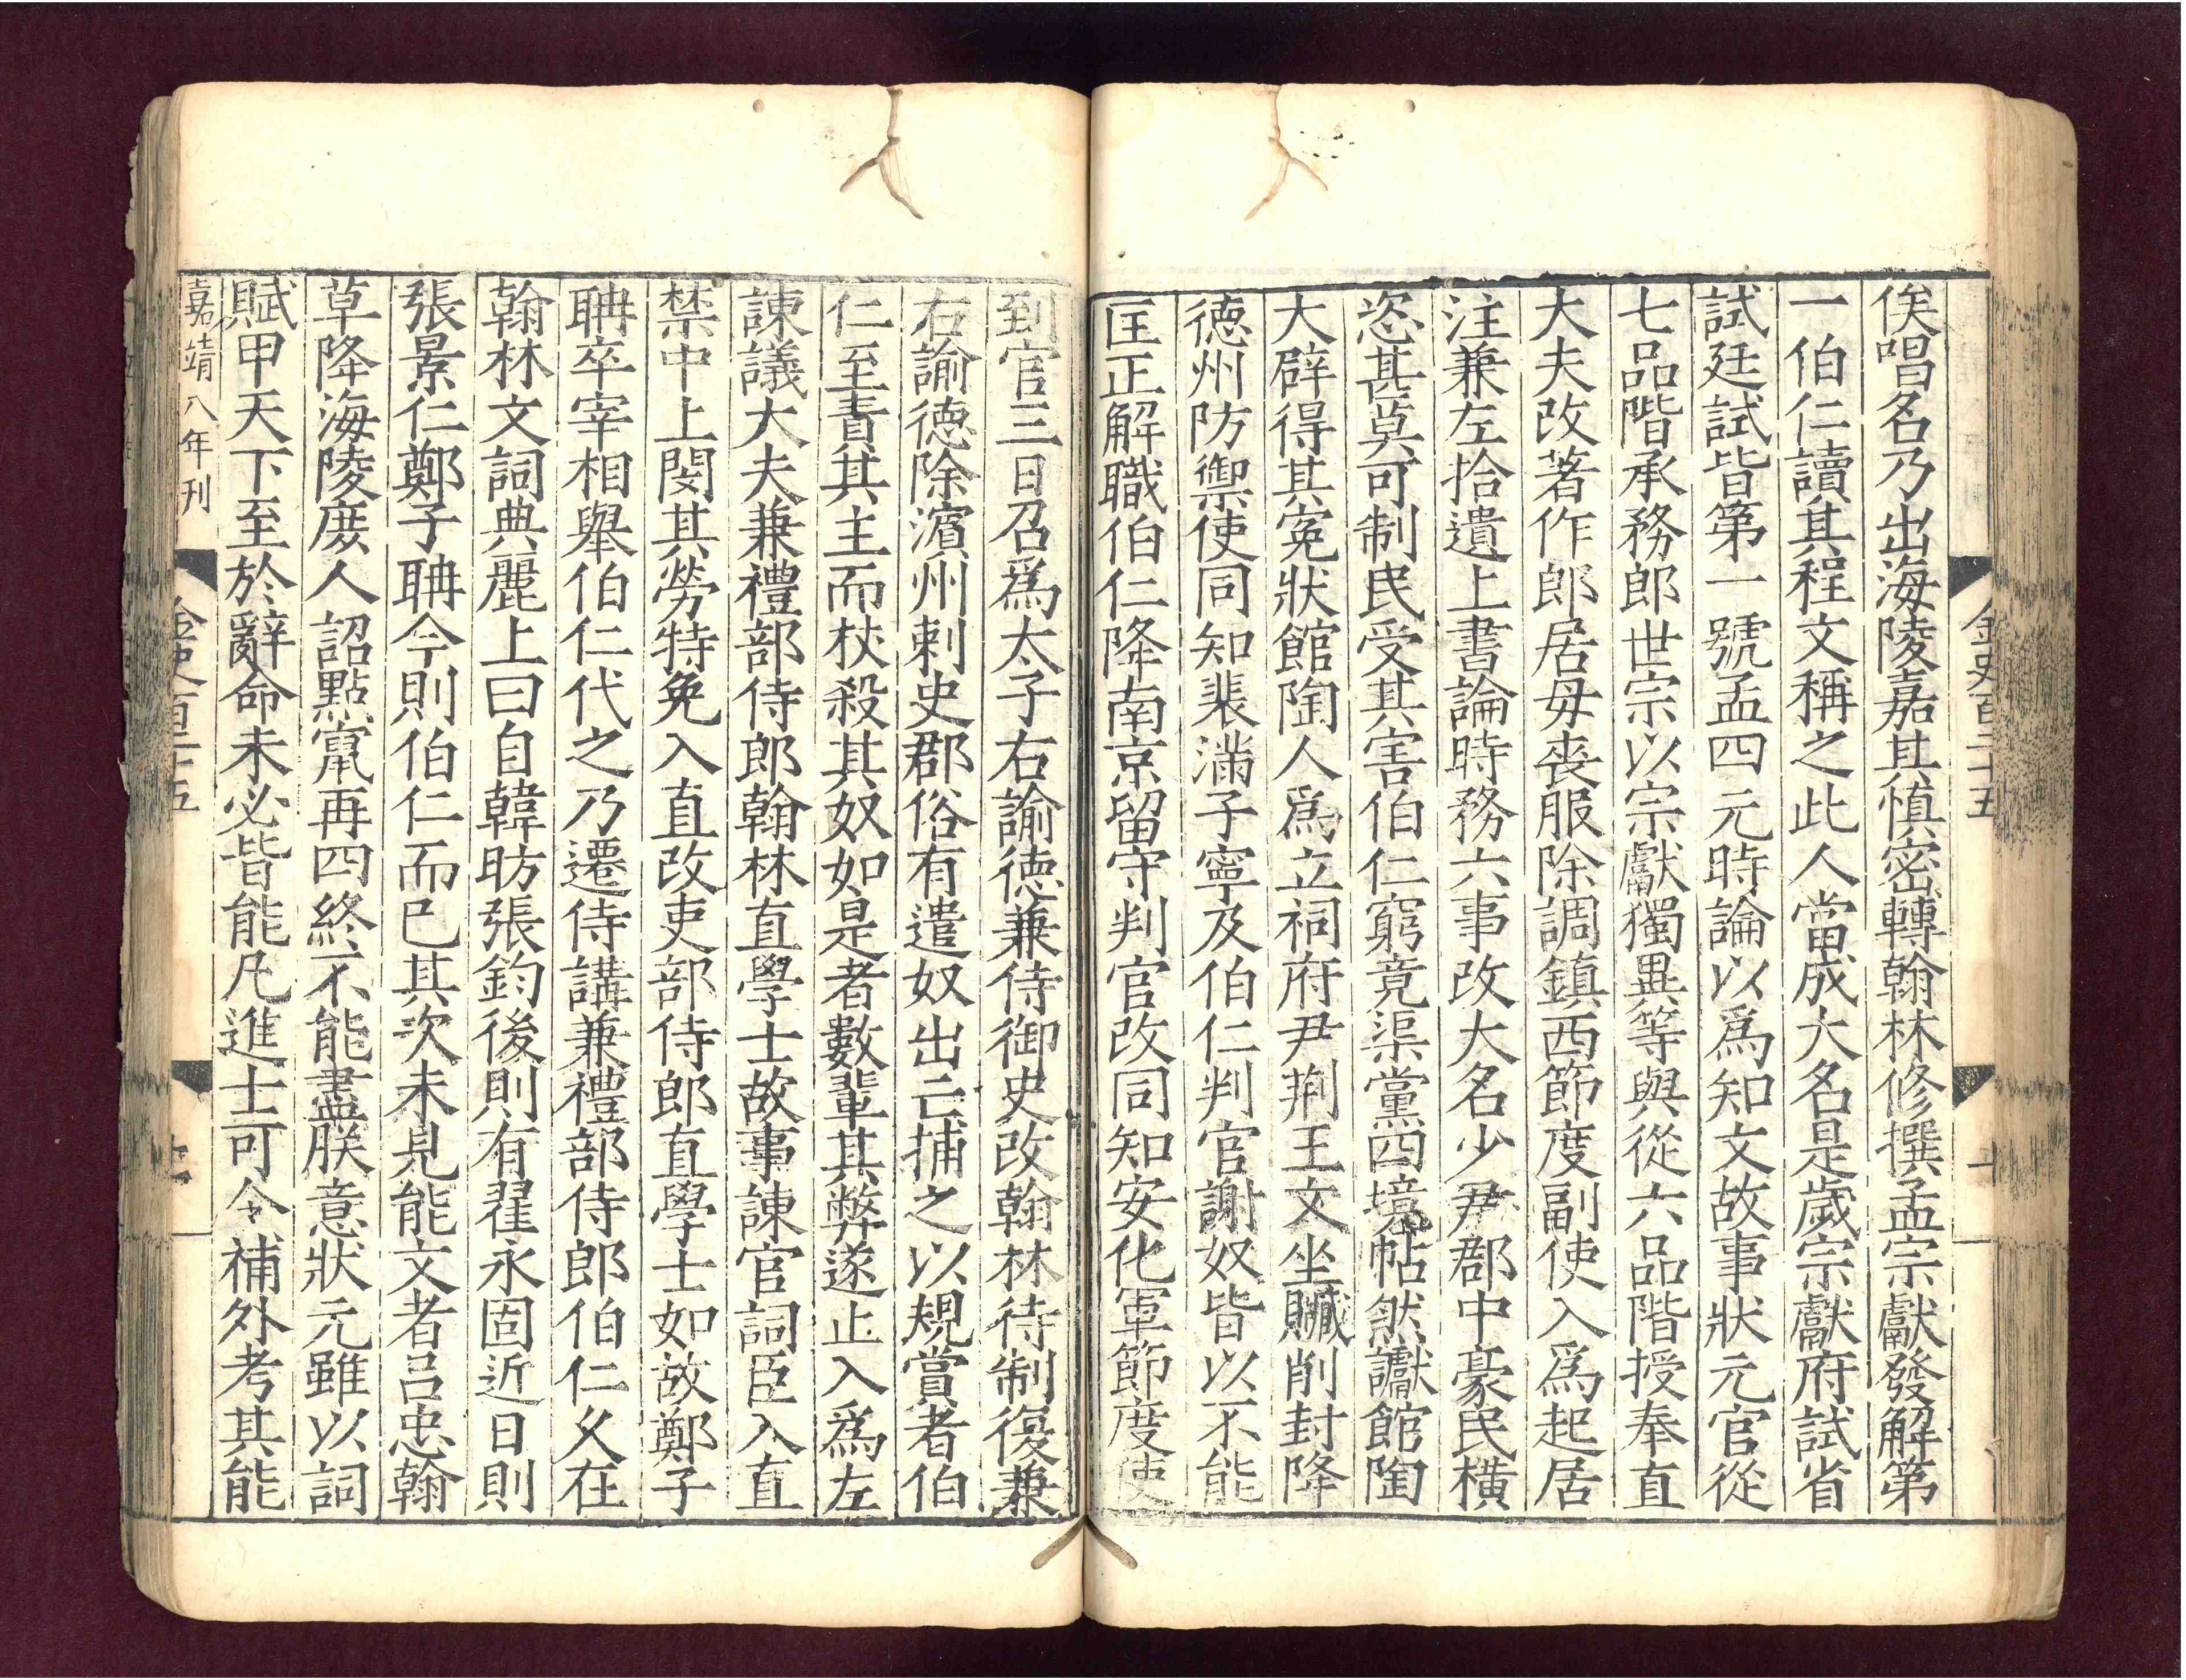 俟唱名乃出海陵嘉其慎密轉翰林修撰孟宗獻發解第
一伯仁讀其程文稱之此人當成大名是歲宗獻府試省
試廷試皆第一號孟四元時論以爲知文故事狀元官從
七品階承務郎世宗以宗獻獨異等與從六品階授奉直
大夫改著作郎居母喪服除調鎮西節度副使入爲起居
注兼左拾遺上書論時務六事改大名少尹郡中豪民橫
恣甚莫可制民受其害伯仁窮竟渠黨四境帖然讞館陶
大辟得其冤狀館陶人爲立祠府尹荆王文坐贓削封降
德州防禦使同知裴滿子寧及伯仁判官謝奴皆以不能
匡正解職伯仁降南京留守判官改同知安化軍節度使
到官三日召爲太子右諭德兼侍御史改翰林待制復兼
右諭德除濱州剌史郡俗有遣奴出亡捕之以規賞者伯
仁至責其主而杖殺其奴如是者數輩其弊遂止入爲左
諫議大夫兼禮部侍郎翰林直學士故事諫官詞臣入直
禁中上閔其勞特免入直改吏部侍郎直學士如故鄭子
聃卒宰相舉伯仁代之乃遷侍講兼禮部侍郎伯仁久在
翰林文詞典麗上曰自韓昉張鈞後則有翟永固近日則
張景仁鄭子聃今則伯仁而已其次未見能文者呂忠翰
草降海陵庶人詔點竄再四終不能盡朕意狀元雖以詞
賦甲天下至於辭命未必皆能凡進士可令補外考其能
嘉靖八年刊
金史百二十五